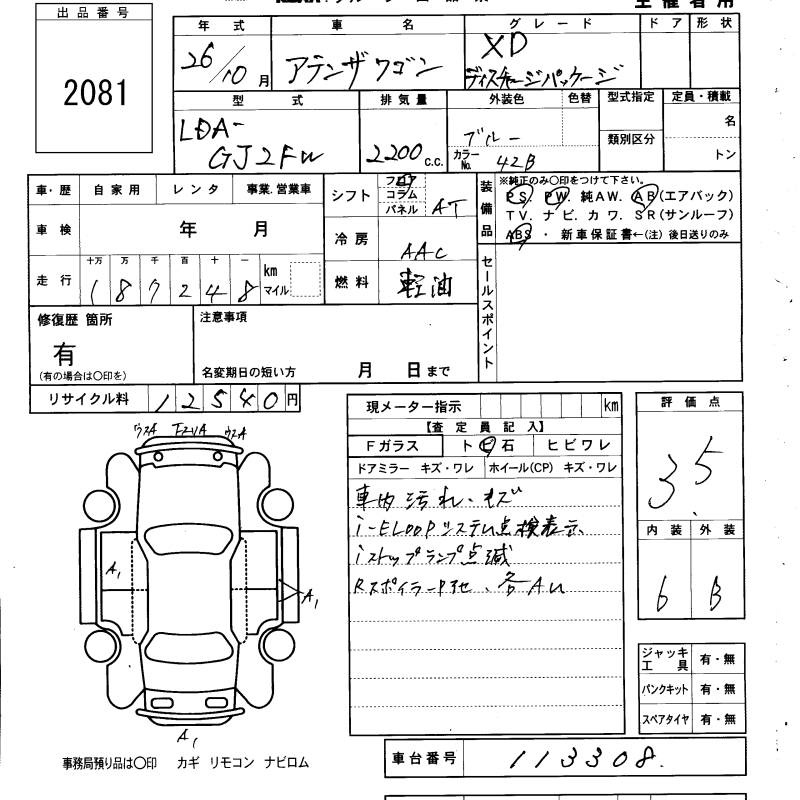 出品番号
2081
年式 車名 グレード ドア 形状
26/10月 アテンザワゴン XD
ディスチャージパッケージ
型式 排気量 外装色 色替 型式指定 定員・積載
LDA-
GJ2FW 2200c.c. ブルー 名
類別区分
カラーNo. 42B トン
車・歴 自家用 レンタ 事業.営業車
シフト フロア コラム パネル AT
車検 年 月
冷房 AAC
走行 十万 万 千 百 十 一 km マイル
1 8 7 2 4 8
燃料 軽油
装備品 ※純正のみ〇印をつけて下さい。
PS. PW. 純AW. AB(エアバック)
TV. ナビ. カワ. SR(サンルーフ)
ABS ・ 新車保証書←(注) 後日送りのみ
セールスポイント
修復歴 箇所
有
(有の場合は〇印を)
注意事項
名変期日の短い方 月 日まで
リサイクル料 1 2 5 4 0 円
現メーター指示 km
【査定員記入】
Fガラス トビ石 ヒビワレ
ドアミラー キズ・ワレ ホイール(CP) キズ・ワレ
車内汚れ、キズ
i-ELOOPシステム点検表示、
iストップランプ点滅
評価点
3.5
内装 外装
6 B
A1
A1
A1
ジャッキ工具 有・無
パンクキット 有・無
スペアタイヤ 有・無
車台番号 113308.
事務局預り品は〇印 カギ リモコン ナビロム